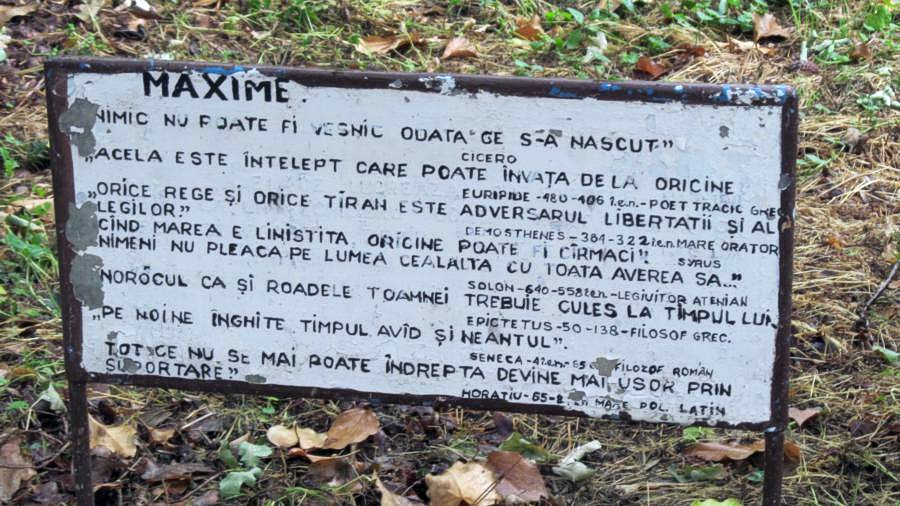 MAXIME.
NIMIC NU POATE FI VESNIC ODATA CE S-A NASCUT"
CICERO
„ACELA ESTE ÎNTELEPT CARE POATE ÎNVAȚA DE LA ORICINE
EURIPIDE-480-406 î.e.n.-POET TRAGIC GREC
„ORICE REGE ȘI ORICE TIRAN ESTE ADVERSARUL LIBERTATII ȘI AL
LEGILOR."
DEMOSTHENES-384-322 î.e.n. MARE ORATOR
CÎND MAREA E LINISTITA ORICINE POATE FI CÎRMACI".
SYRUS
NIMENI NU PLEACA PE LUMEA CEALALTA CU TOATA AVEREA SA..."
SOLON-640-558 î.e.n.-LEGIUITOR ATENIAN
NOROCUL CA ȘI ROADELE TOAMNEI TREBUIE CULES LA TÎMPUL LUI.
EPICTETUS-50-138-FILOSOF GREC.
„PE NOI NE ÎNGHITE TÎMPUL AVÎD ȘI NEANTUL".
SENECA-4 î.e.n-65 FILOZOF ROMÂN
TOT CE NU SE MAI POATE ÎNDREPTA DEVINE MAI USOR PRIN
SUPORTARE"
HORATIU-65-8 MARE POL. LATIN